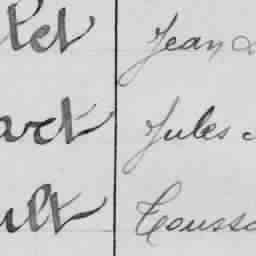 let Jean
art Jules
ult Touss